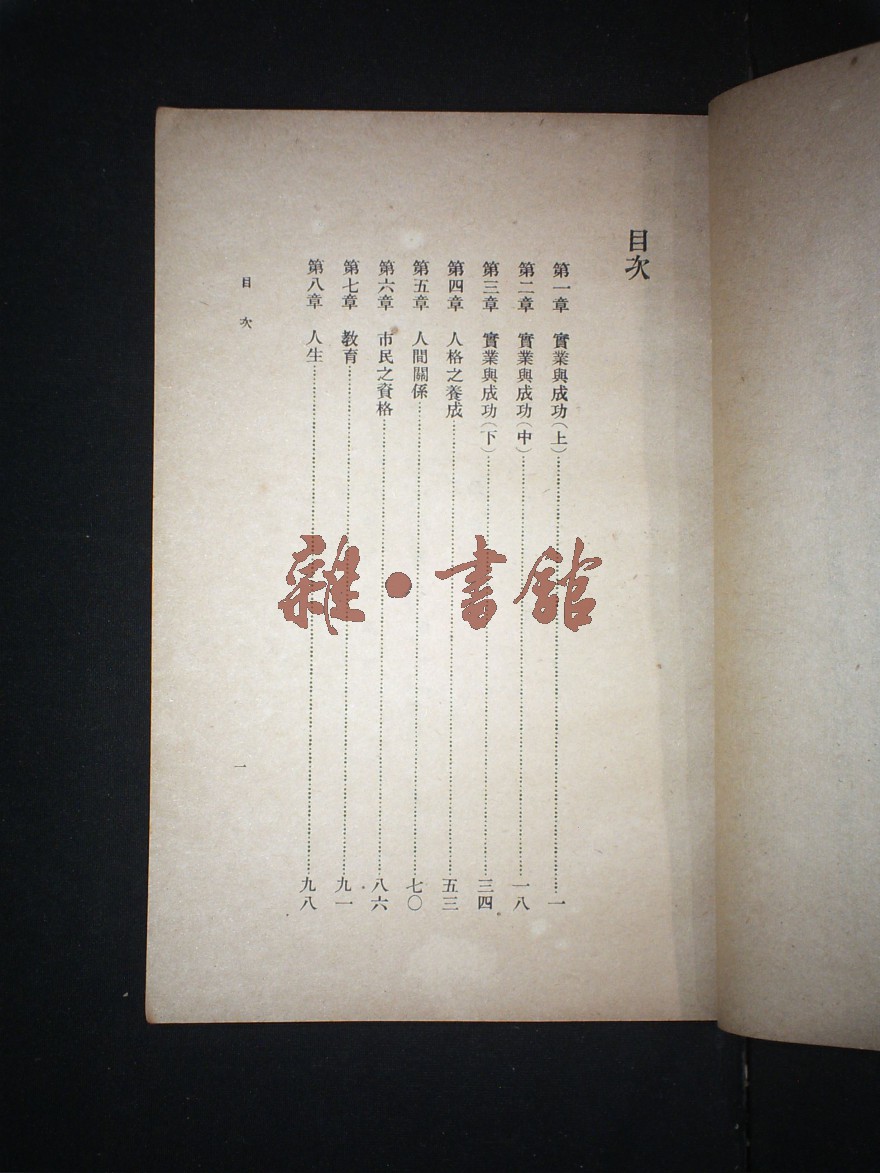 目次
第一章　實業與成功(上)…………一
第二章　實業與成功(中)…………一八
第三章　實業與成功(下)…………三四
第四章　人格之養成…………五三
第五章　人間關係…………七〇
第六章　市民之資格…………八六
第七章　教育…………九一
第八章　人生…………九八
目次　一
雜·書館